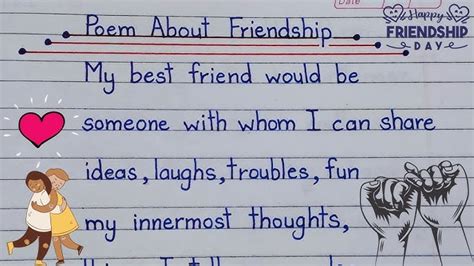 Date
Poem About Friendship
Happy
FRIENDSHIP
DAY
My best friend would be
someone with whom I can share
ideas, laughs, troubles, fun
my innermost thoughts,